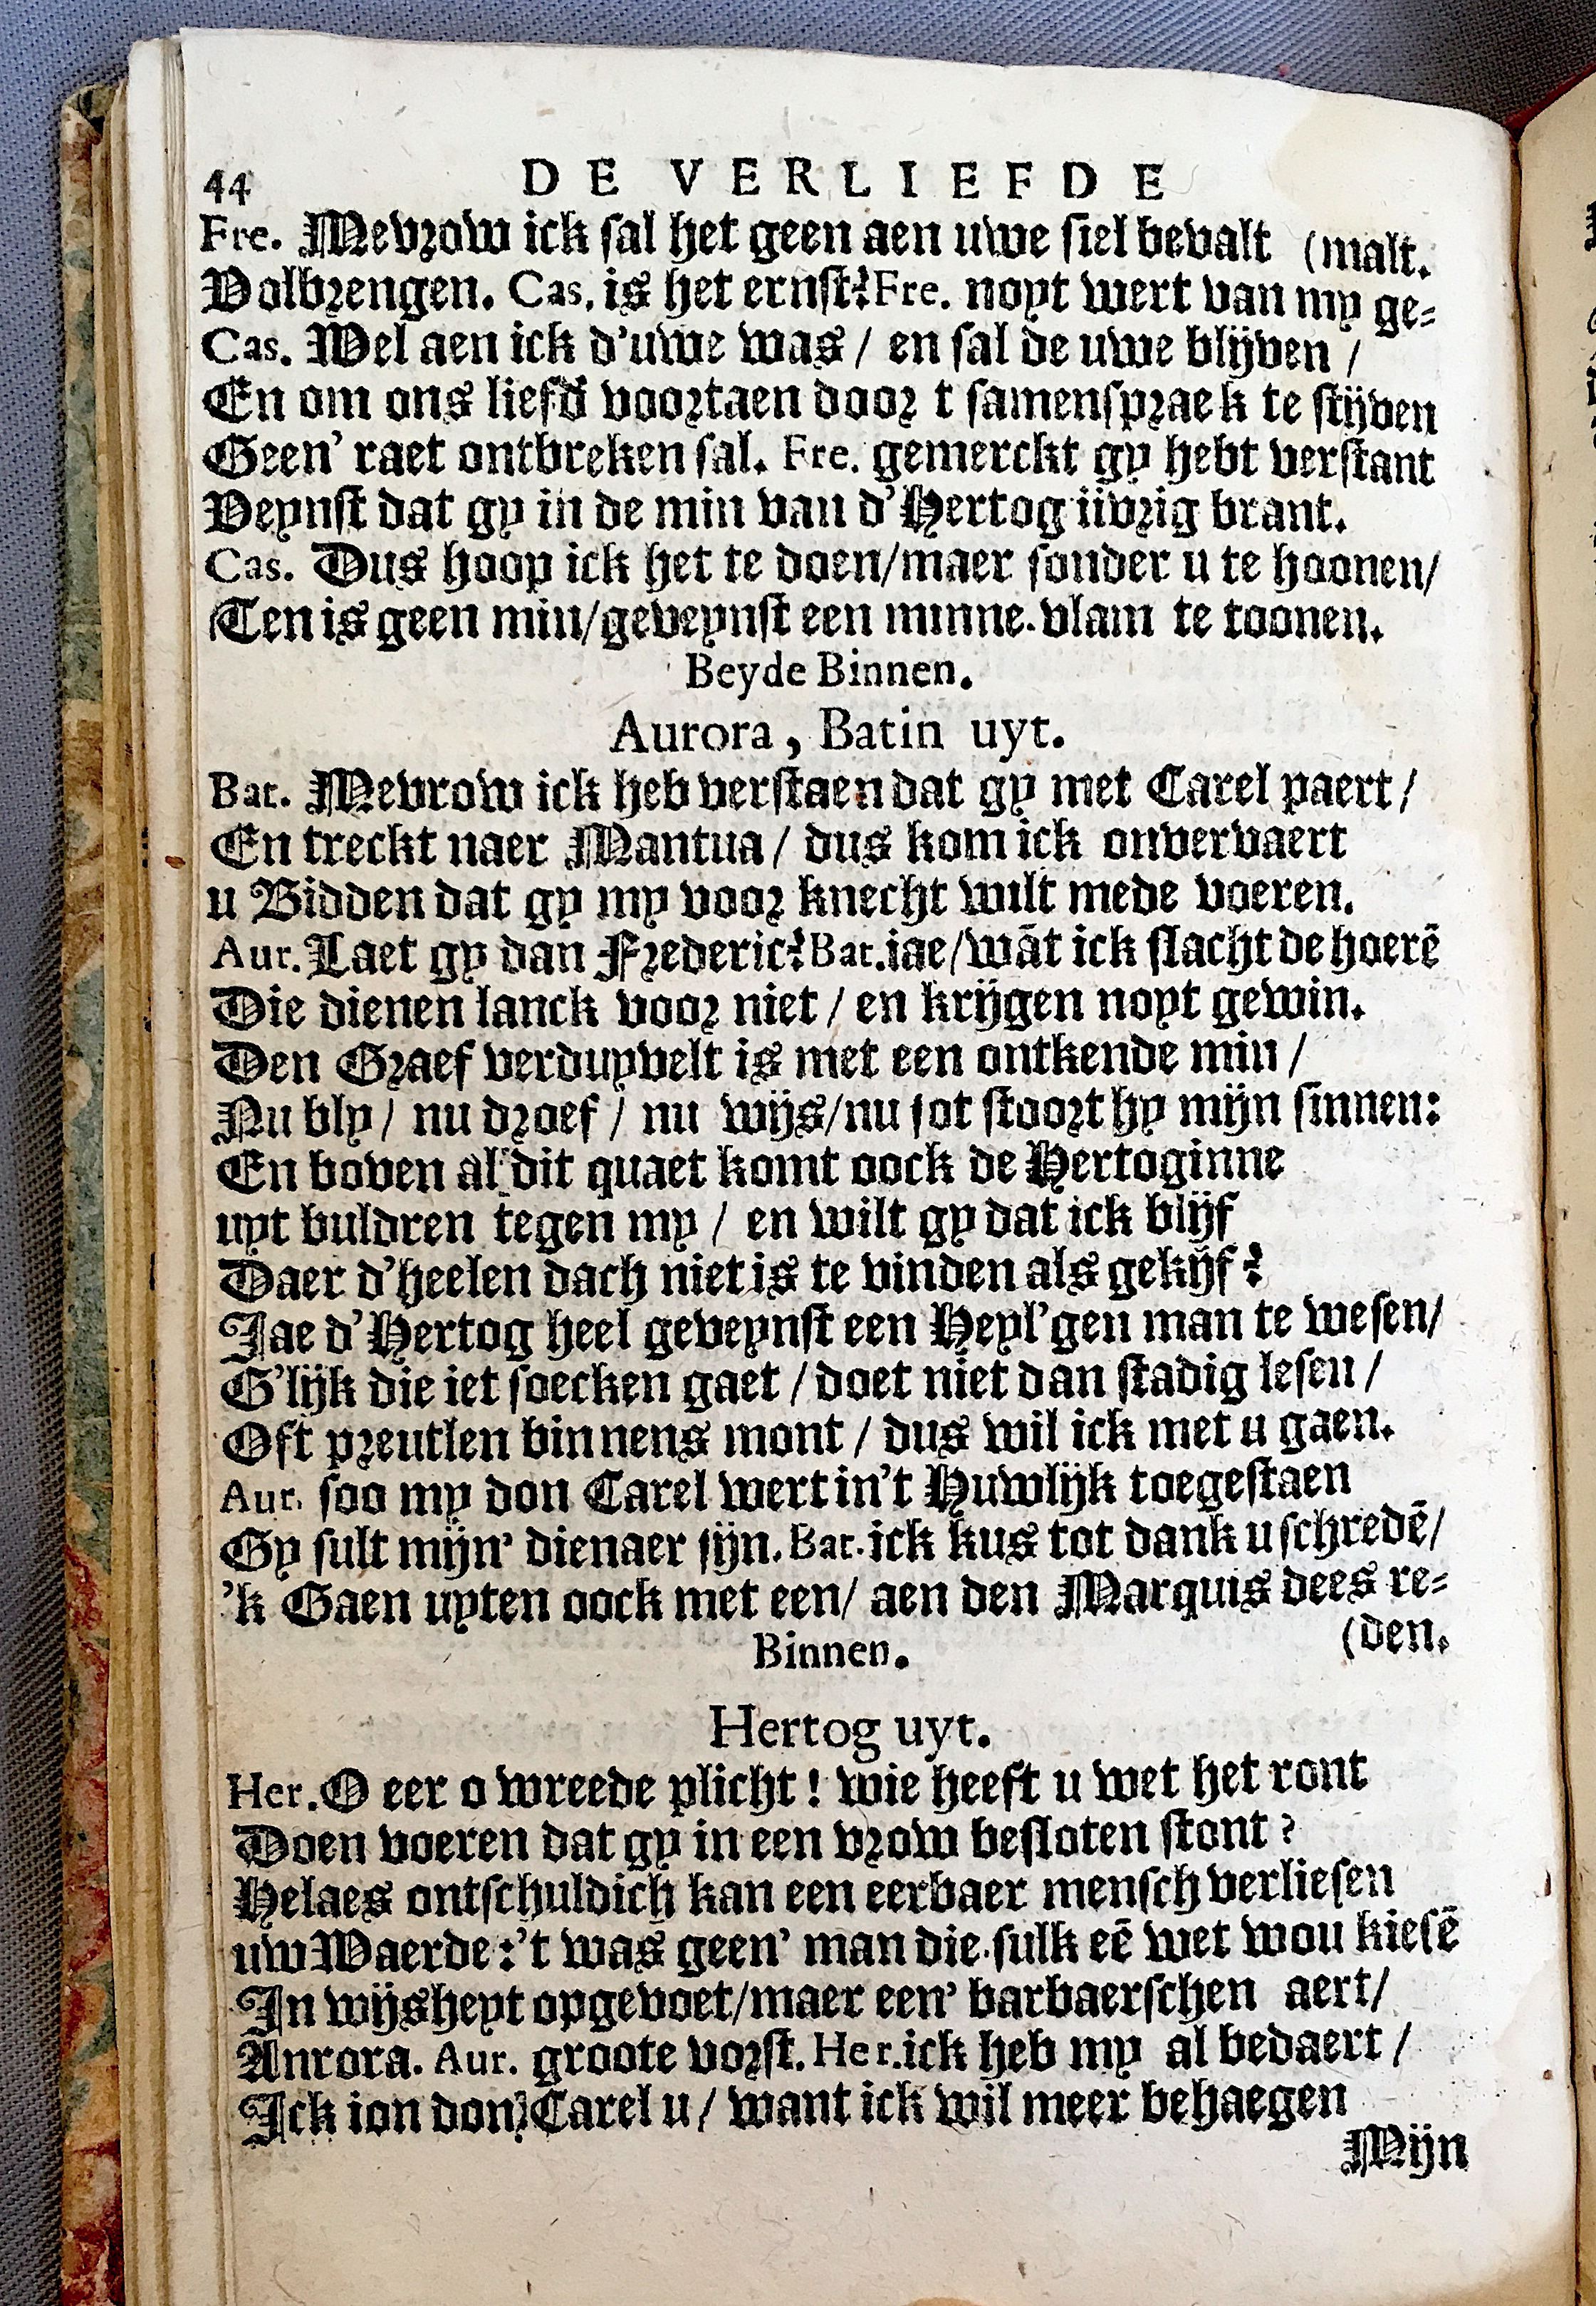 44 DE VERLIEFDE
Fre. Mevrow ick sal het geen aen uwe siel bevalt (malt.
Volbrengen. Cas. is het ernst? Fre. noyt wert van my ge-
Cas. Wel aen ick d'uwe was / en sal de uwe blijven /
En om ons liefd' voortaen door t samenspraek te stijven
Geen' raet ontbreken sal. Fre. gemerckt gy hebt verstant
Veynst dat gy in de min van d'Hertog iivrig brant.
Cas. Dus hoop ick het te doen/maer sonder u te hoonen/
Ten is geen min/geveynst een minne-vlam te toonen.
Beyde Binnen.
Aurora, Batin uyt.
Bat. Mevrow ick heb verstaen dat gy met Carel paert /
En treckt naer Mantua / dus kom ick onvervaert
u Bidden dat gy my voor knecht wilt mede voeren.
Aur. Laet gy dan Frederic? Bat. iae/wāt ick slacht de hoerē
Die dienen lanck voor niet / en krijgen noyt gewin.
Den Graef verduyvelt is met een ontkende min /
Nu bly / nu droef / nu wijs/nu sot stoort hy mijn sinnen:
En boven al dit quaet komt oock de Hertoginne
uyt buldren tegen my / en wilt gy dat ick blijf
Daer d'heelen dach niet is te vinden als gekijf?
Jae d'Hertog heel geveynst een Heyl'gen man te wesen/
G'lijk die iet soecken gaet / doet niet dan stadig lesen /
Oft preutlen binnens mont / dus wil ick met u gaen.
Aur. soo my don Carel wert in't Huwlijk toegestaen
Gy sult mijn' dienaer sijn. Bat. ick kus tot dank u schredē/
'k Gaen uyten oock met een/ aen den Marquis dees re-
(den.
Binnen.
Hertog uyt.
Her. O eer o wreede plicht ! wie heeft u wet het ront
Doen voeren dat gy in een vrow besloten stont ?
Helaes ontschuldich kan een eerbaer mensch verliesen
uw Waerde :'t was geen' man die sulk eē wet wou kiesē
In wijsheyt opgevoet/maer een' barbaerschen aert/
Anrora. Aur. groote vorst. Her. ick heb my al bedaert /
Ick ion don Carel u / want ick wil meer behaegen
Mijn